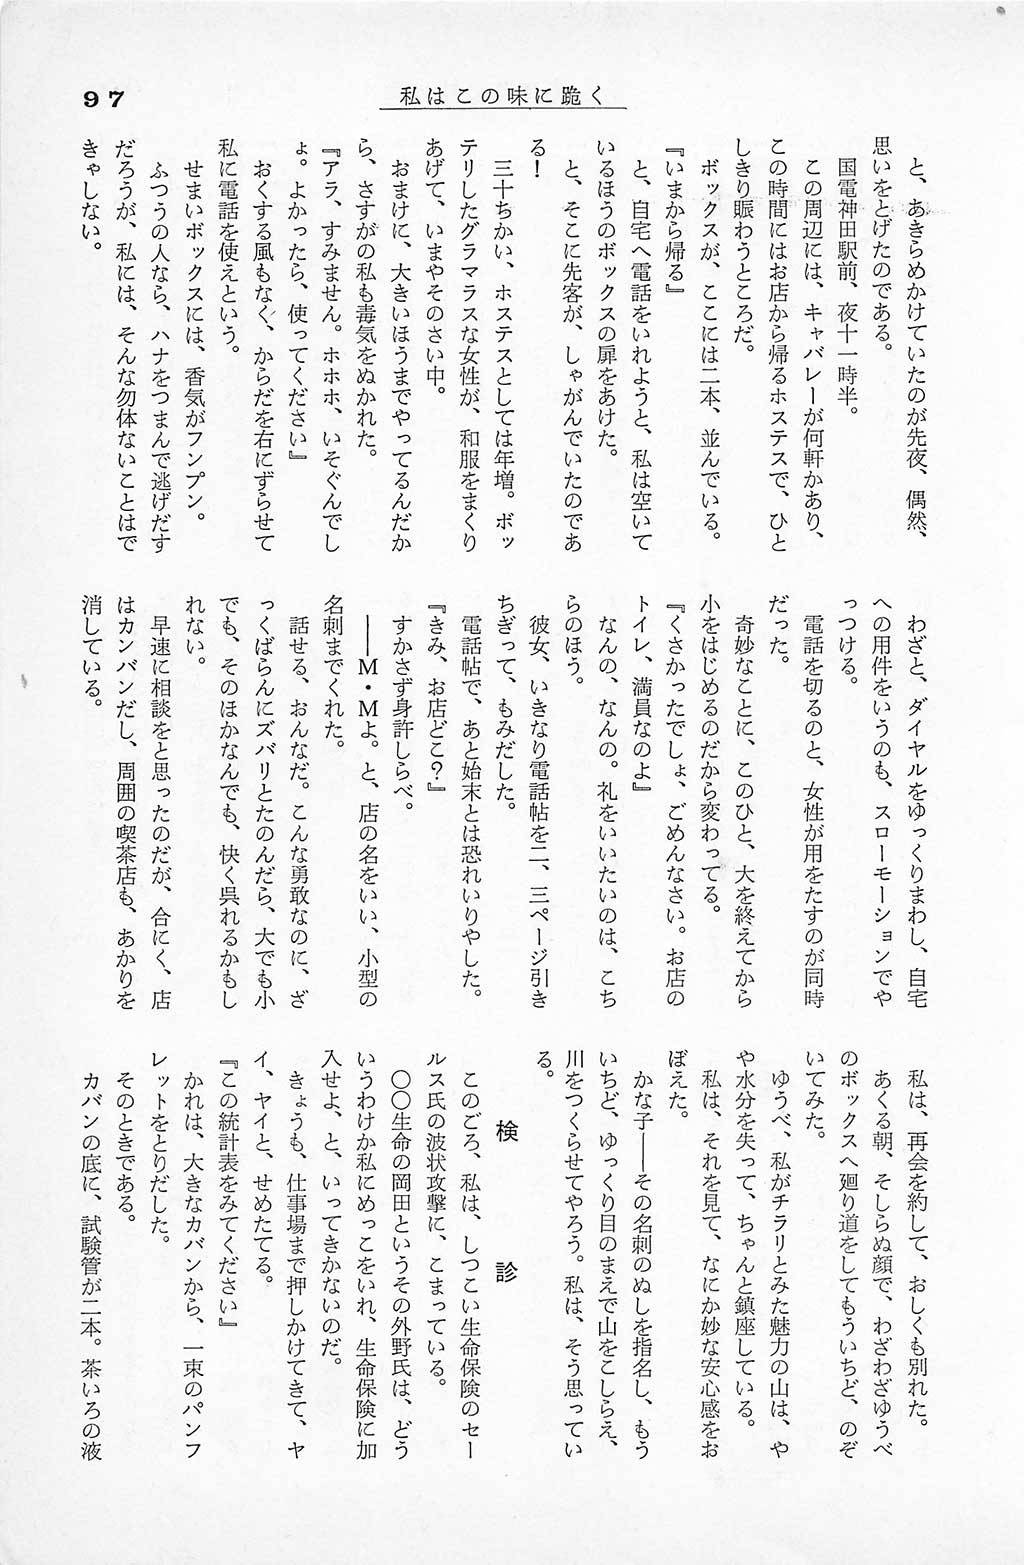 97
私はこの味に跪く
と、あきらめかけていたのが先夜、偶然、
思いをとげたのである。
国電神田駅前、夜十一時半。
この周辺には、キャバレーが何軒かあり、
この時間にはお店から帰るホステスで、ひと
しきり賑わうところだ。
ボックスが、ここには二本、並んでいる。
『いまから帰る』
と、自宅へ電話をいれようと、私は空いて
いるほうのボックスの扉をあけた。
と、そこに先客が、しゃがんでいたのであ
る！
三十ちかい、ホステスとしては年増。ボッ
テリしたグラマラスな女性が、和服をまくり
あげて、いまやそのさい中。
おまけに、大きいほうまでやってるんだか
ら、さすがの私も毒気をぬかれた。
『アラ、すみません。ホホホ、いそぐんでし
ょ。よかったら、使ってください』
おくする風もなく、からだを右にずらせて
私に電話を使えという。
せまいボックスには、香気がフンプン。
ふつうの人なら、ハナをつまんで逃げだす
だろうが、私には、そんな勿体ないことはで
きゃしない。
わざと、ダイヤルをゆっくりまわし、自宅
への用件をいうのも、スローモーションでや
っつける。
電話を切るのと、女性が用をたすのが同時
だった。
奇妙なことに、このひと、大を終えてから
小をはじめるのだから変わってる。
『くさかったでしょ、ごめんなさい。お店の
トイレ、満員なのよ』
なんの、なんの。礼をいいたいのは、こち
らのほう。
彼女、いきなり電話帖を二、三ページ引き
ちぎって、もみだした。
電話帖で、あと始末とは恐れいりやした。
『きみ、お店どこ？』
すかさず身許しらべ。
――M・Mよ。と、店の名をいい、小型の
名刺までくれた。
話せる、おんなだ。こんな勇敢なのに、ざ
っくばらんにズバリとたのんだら、大でも小
でも、そのほかなんでも、快く呉れるかもし
れない。
早速に相談をと思ったのだが、合にく、店
はカンバンだし、周囲の喫茶店も、あかりを
消している。
私は、再会を約して、おしくも別れた。
あくる朝、そしらぬ顔で、わざわざゆうべ
のボックスへ廻り道をしてもういちど、のぞ
いてみた。
ゆうべ、私がチラリとみた魅力の山は、や
や水分を失って、ちゃんと鎮座している。
私は、それを見て、なにか妙な安心感をお
ぼえた。
かな子――その名刺のぬしを指名し、もう
いちど、ゆっくり目のまえで山をこしらえ、
川をつくらせてやろう。私は、そう思ってい
る。
検診
このごろ、私は、しつこい生命保険のセー
ルス氏の波状攻撃に、こまっている。
〇〇生命の岡田というその外野氏は、どう
いうわけか私にめっこをいれ、生命保険に加
入せよ、と、いってきかないのだ。
きょうも、仕事場まで押しかけてきて、ヤ
イ、ヤイと、せめたてる。
『この統計表をみてください』
かれは、大きなカバンから、一束のパンフ
レットをとりだした。
そのときである。
カバンの底に、試験管が二本。茶いろの液